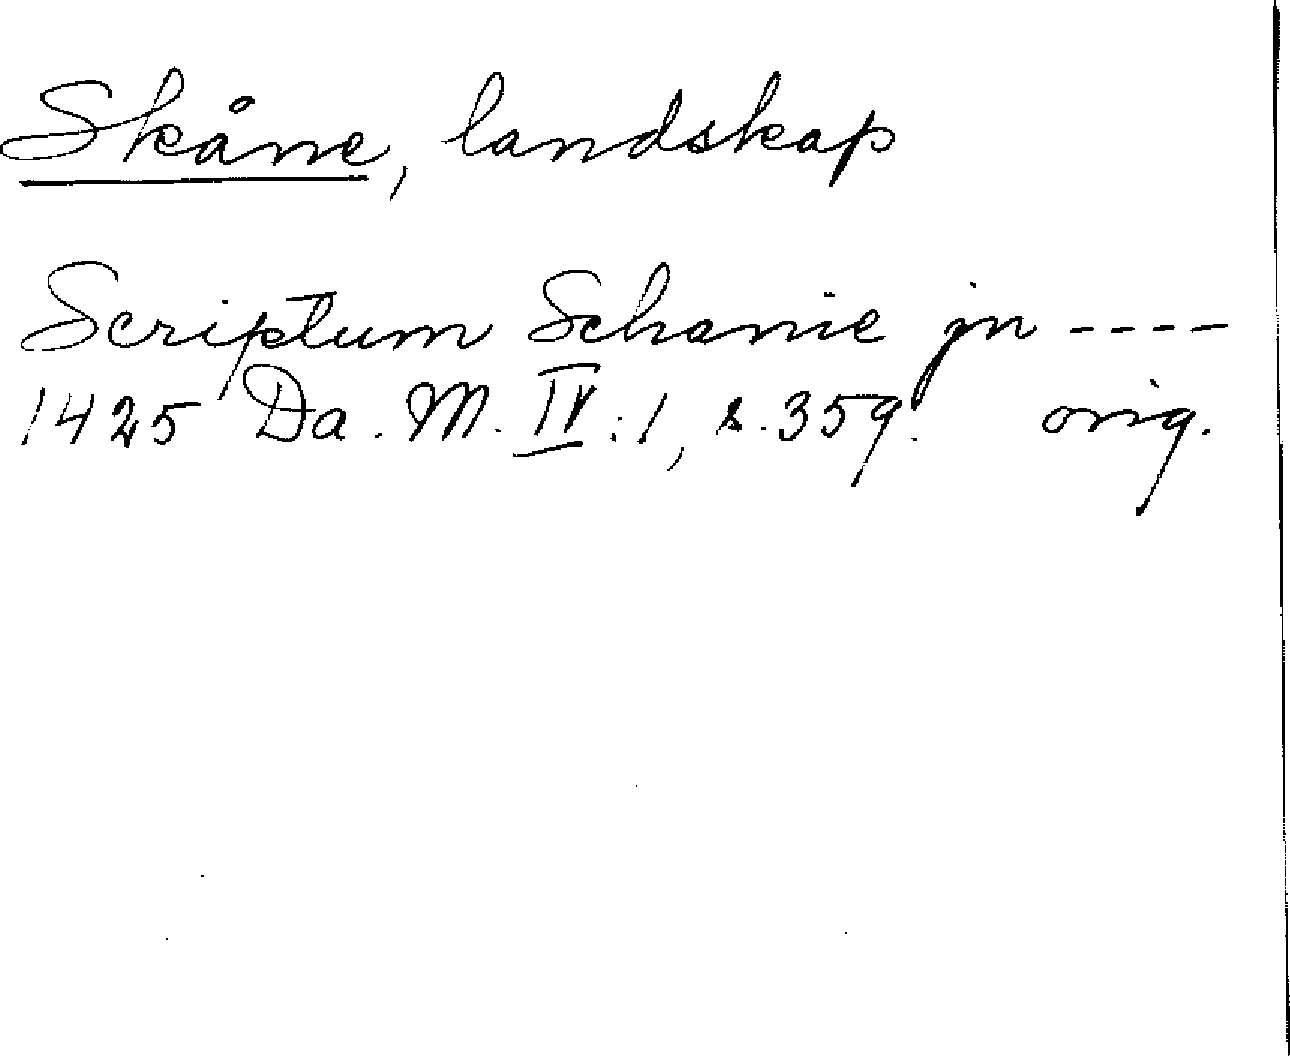 Skåne, landskap
Scriptum Schanie jn ----
1425 Da. M. IV:1, s. 359. orig.